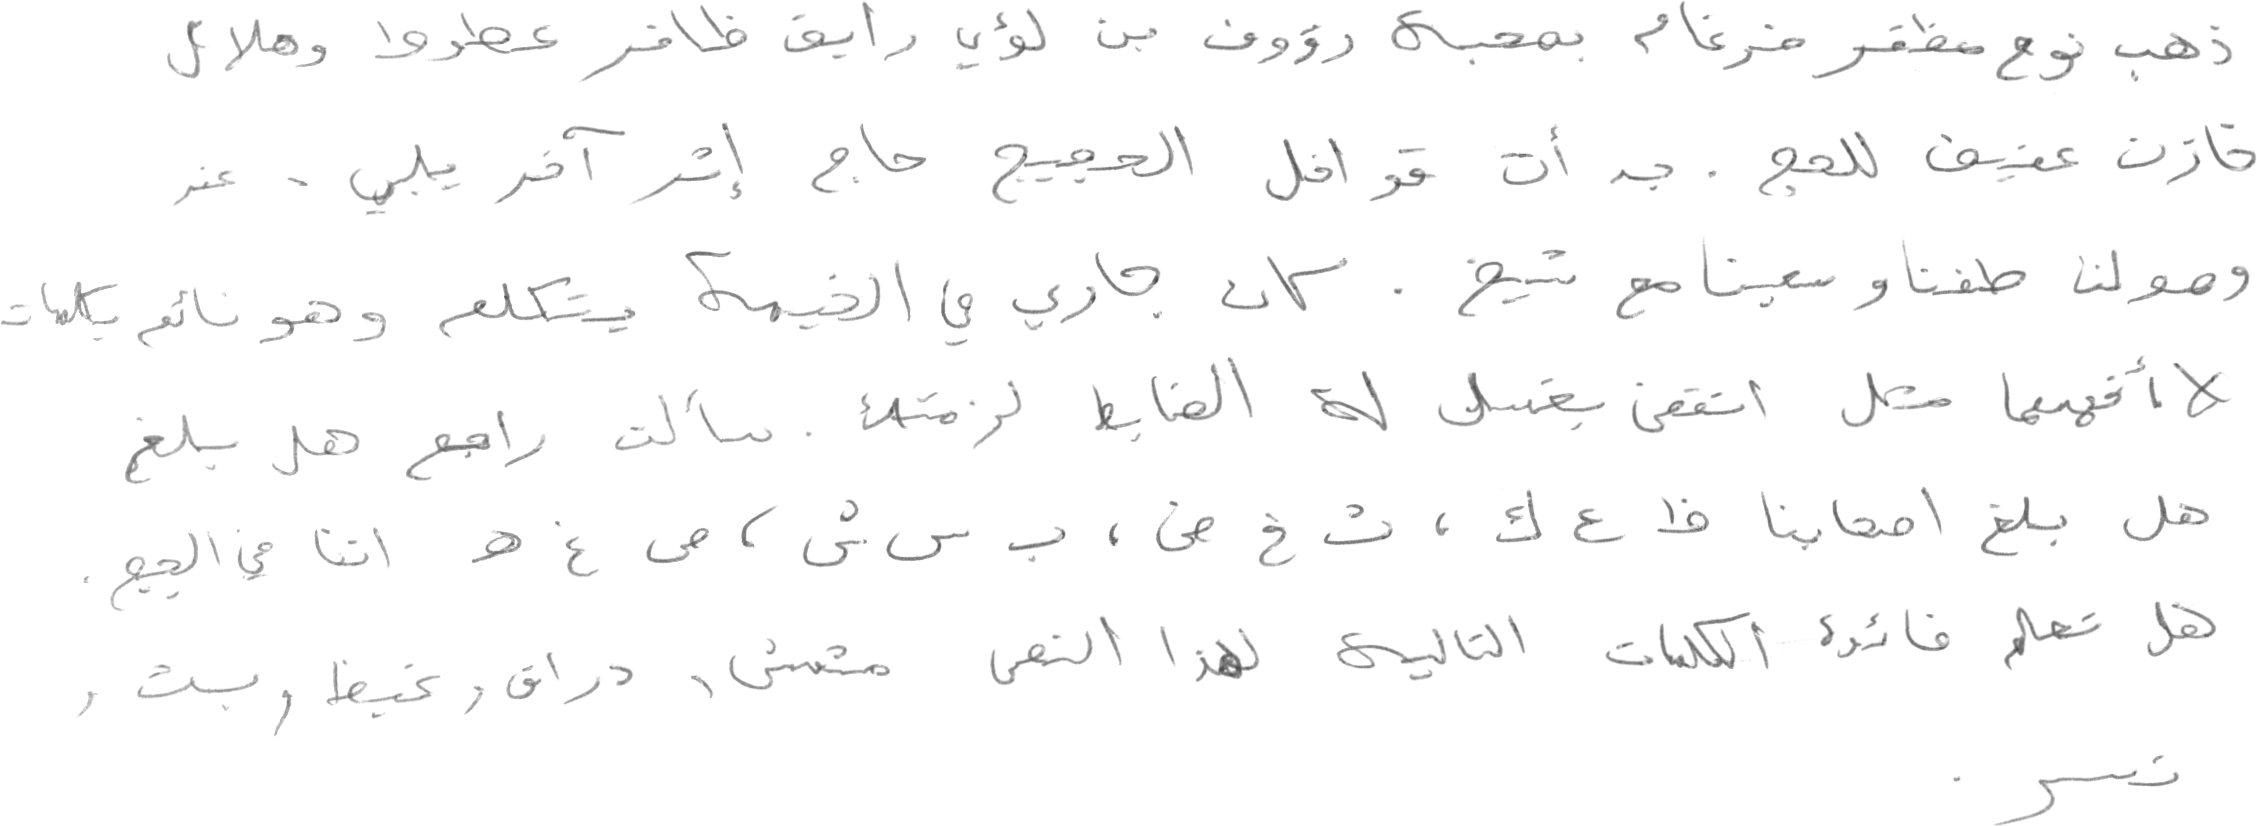 ذهب نوح مظفر ضرغام بصحبة رؤوف بن لؤي رايق ظافر عطروا وهلال
خازن عفيف للحج . بدأت قوافل الحجيج حاج إثر آخر يلبي . عند
وصولنا طفنا وسعينا مع شيخ . كان جاري في الخيمة يتكلم وهو نائم بكلمات
لا أفهمها مثل انتقض بغسل لة الضابط لزمتئ . سألت راجح هل بلغ
هل بلغ اصحابنا ظ ع ك ، ث خ ض ، ب س ش ، ص غ ه اننا في الحج .
هل تعلم فائدة الكلمات التالية لهذا النص مشمش ، دراق , غيظ , بست ,
نسر .